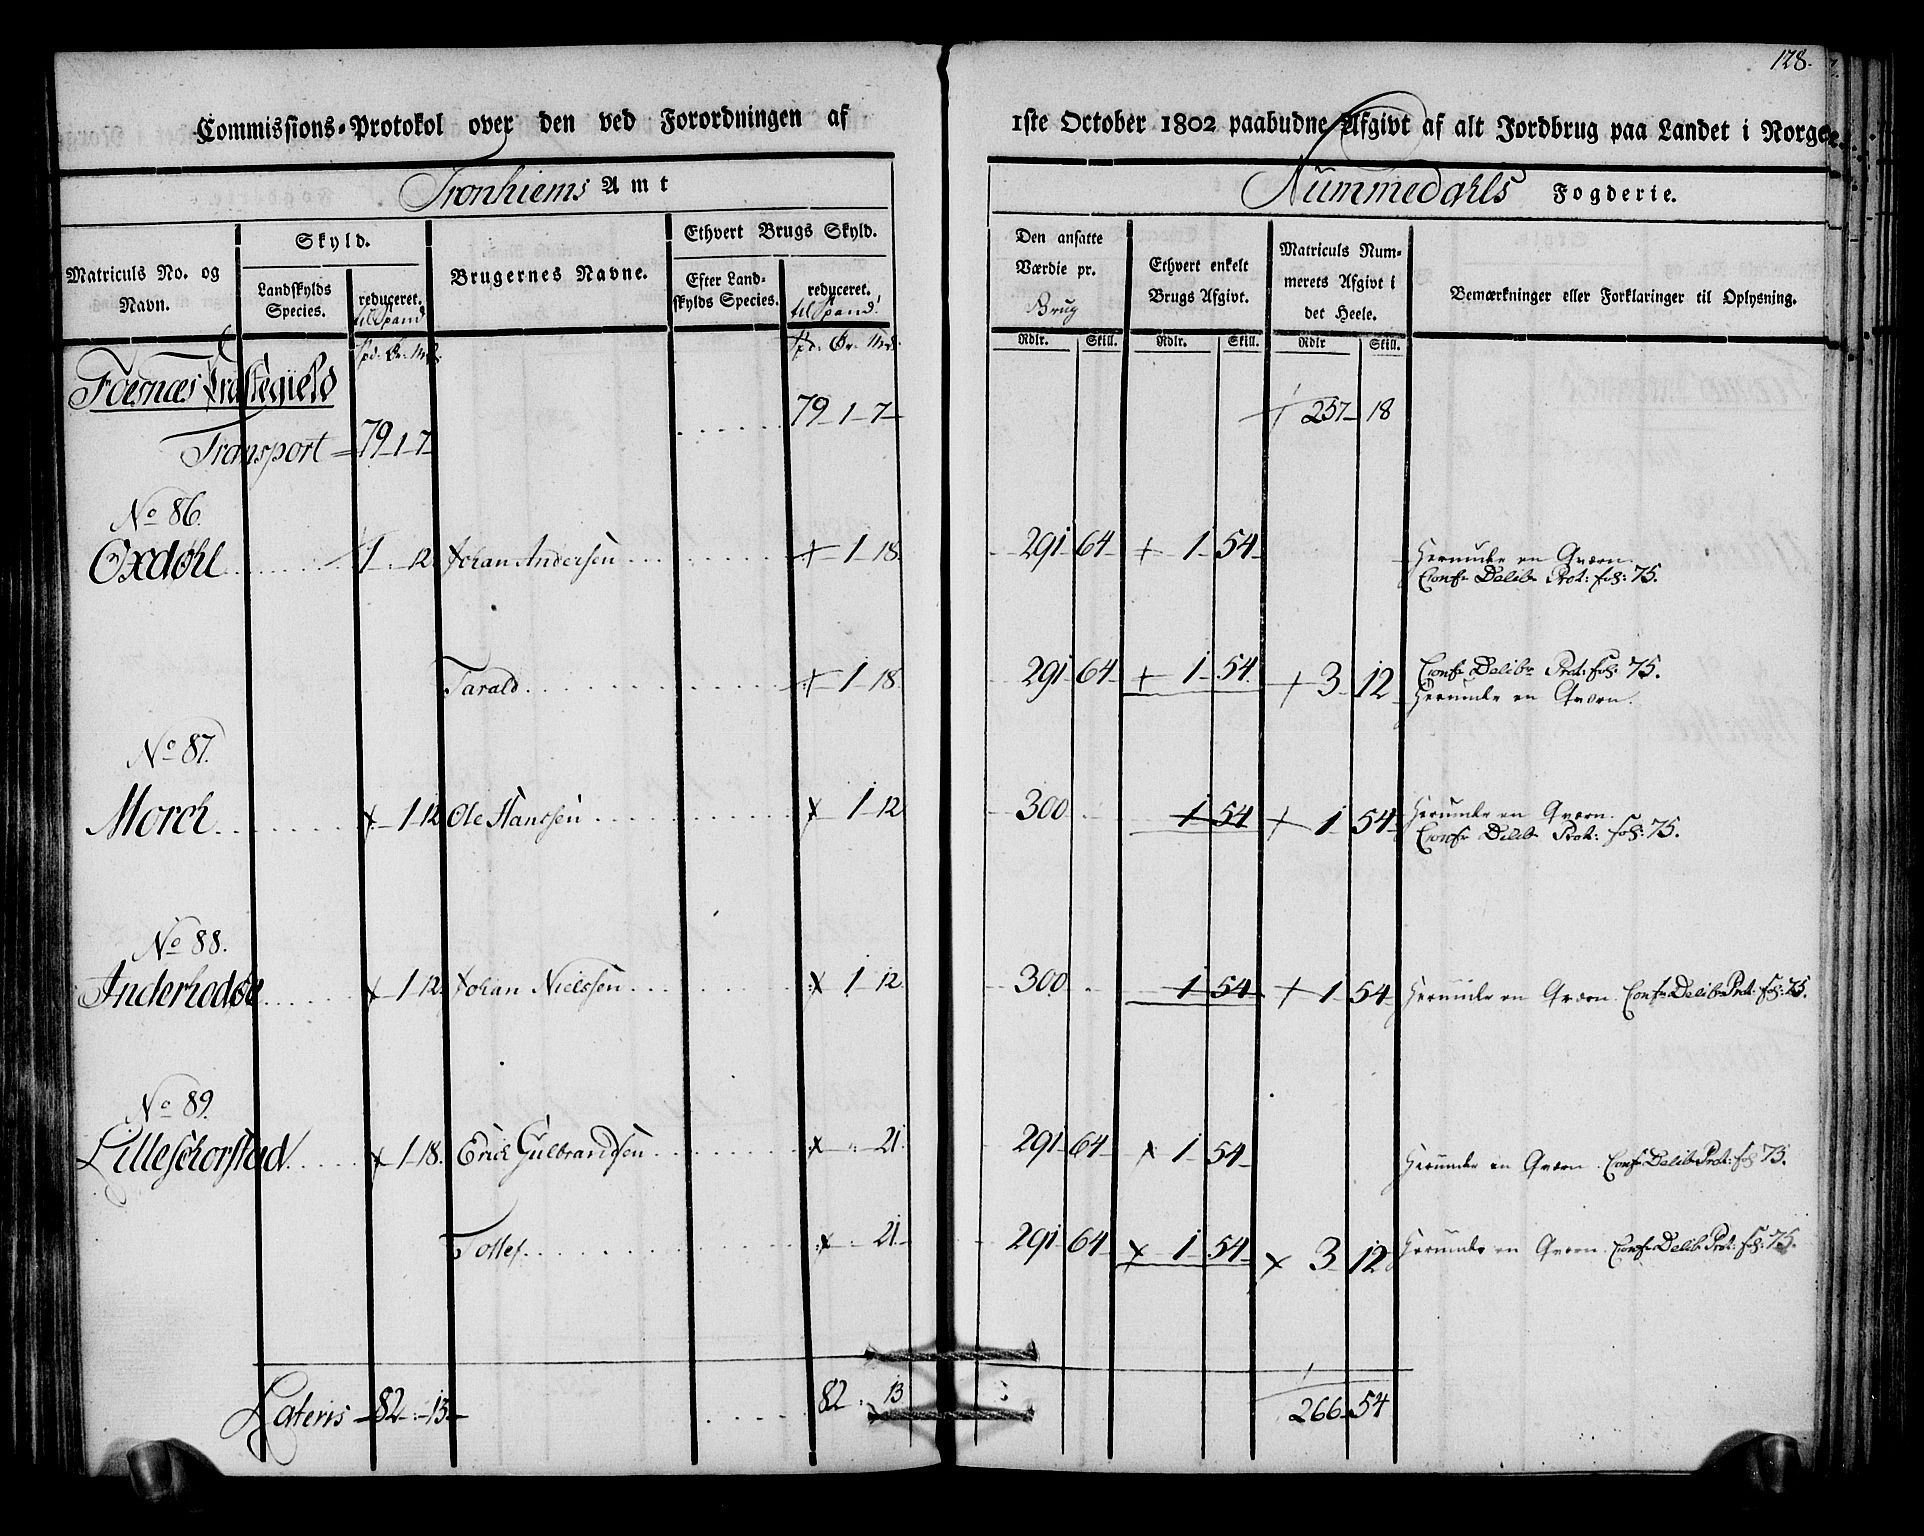 128.
Commissions-Protokol over den ved Forordningen af 1ste October 1802 paabudne Afgivt af alt Jordbrug paa Landet i Norge.
Tronhiems Amt
Nummedahls Fogderie.
Matriculs No. og Navn.
Skyld.
Landskylds Species.
reduceret. til Spand
Brugernes Navne.
Ethvert Brugs Skyld.
Efter Landskylds Species.
reduceret. til Spand
Den ansatte Værdie pr. Brug
Ethvert enkelt Brugs Afgivt.
Matriculs Nummerets Afgivt i det Heele.
Bemærkninger eller Forklaringer til Oplysning.
Spd. Ør. Mrk. Spd. Ør. Mrk. Rdlr. Skill. Rdlr. Skill. Rdlr Skill.
Foesnæs Præstegield
Transport 79-1-7 79-1-7- 257-18
No 86.
Oxdøhl 1-.12 Johan Andersen 1-18. 291 64 1-54 Herunder en Qværn.
Confr Delib Prot: fol: 75.
Tarald 1-18. 291 64 1-54 3-12 Confr Delibr Prot: fol: 75.
Herunder en Qværn.
No 87.
Morch 1-12 Ole Hanssen 1-12 300 1-54 1-54 Herunder en Qværn.
Confr Delib Prot: fol: 75.
No 88.
Inderhodøe 1-12. Johan Nielssen 1-12 300 1-54 1-54 Herunder en Qværn. Confr Delib Prot: fol: 75.
No 89.
Lilleschorstad 1-18. Erich Gulbrandsen 21. 291 64 1-54 Herunder en Qværn. Confr Delib Prot: fol 75.
Tollef 21- 291 64 1-54 3-12 Herunder en Qværn. Confr Delib Prot: fol: 75.
Lateris 82-.-13- 82 . 13 266-54